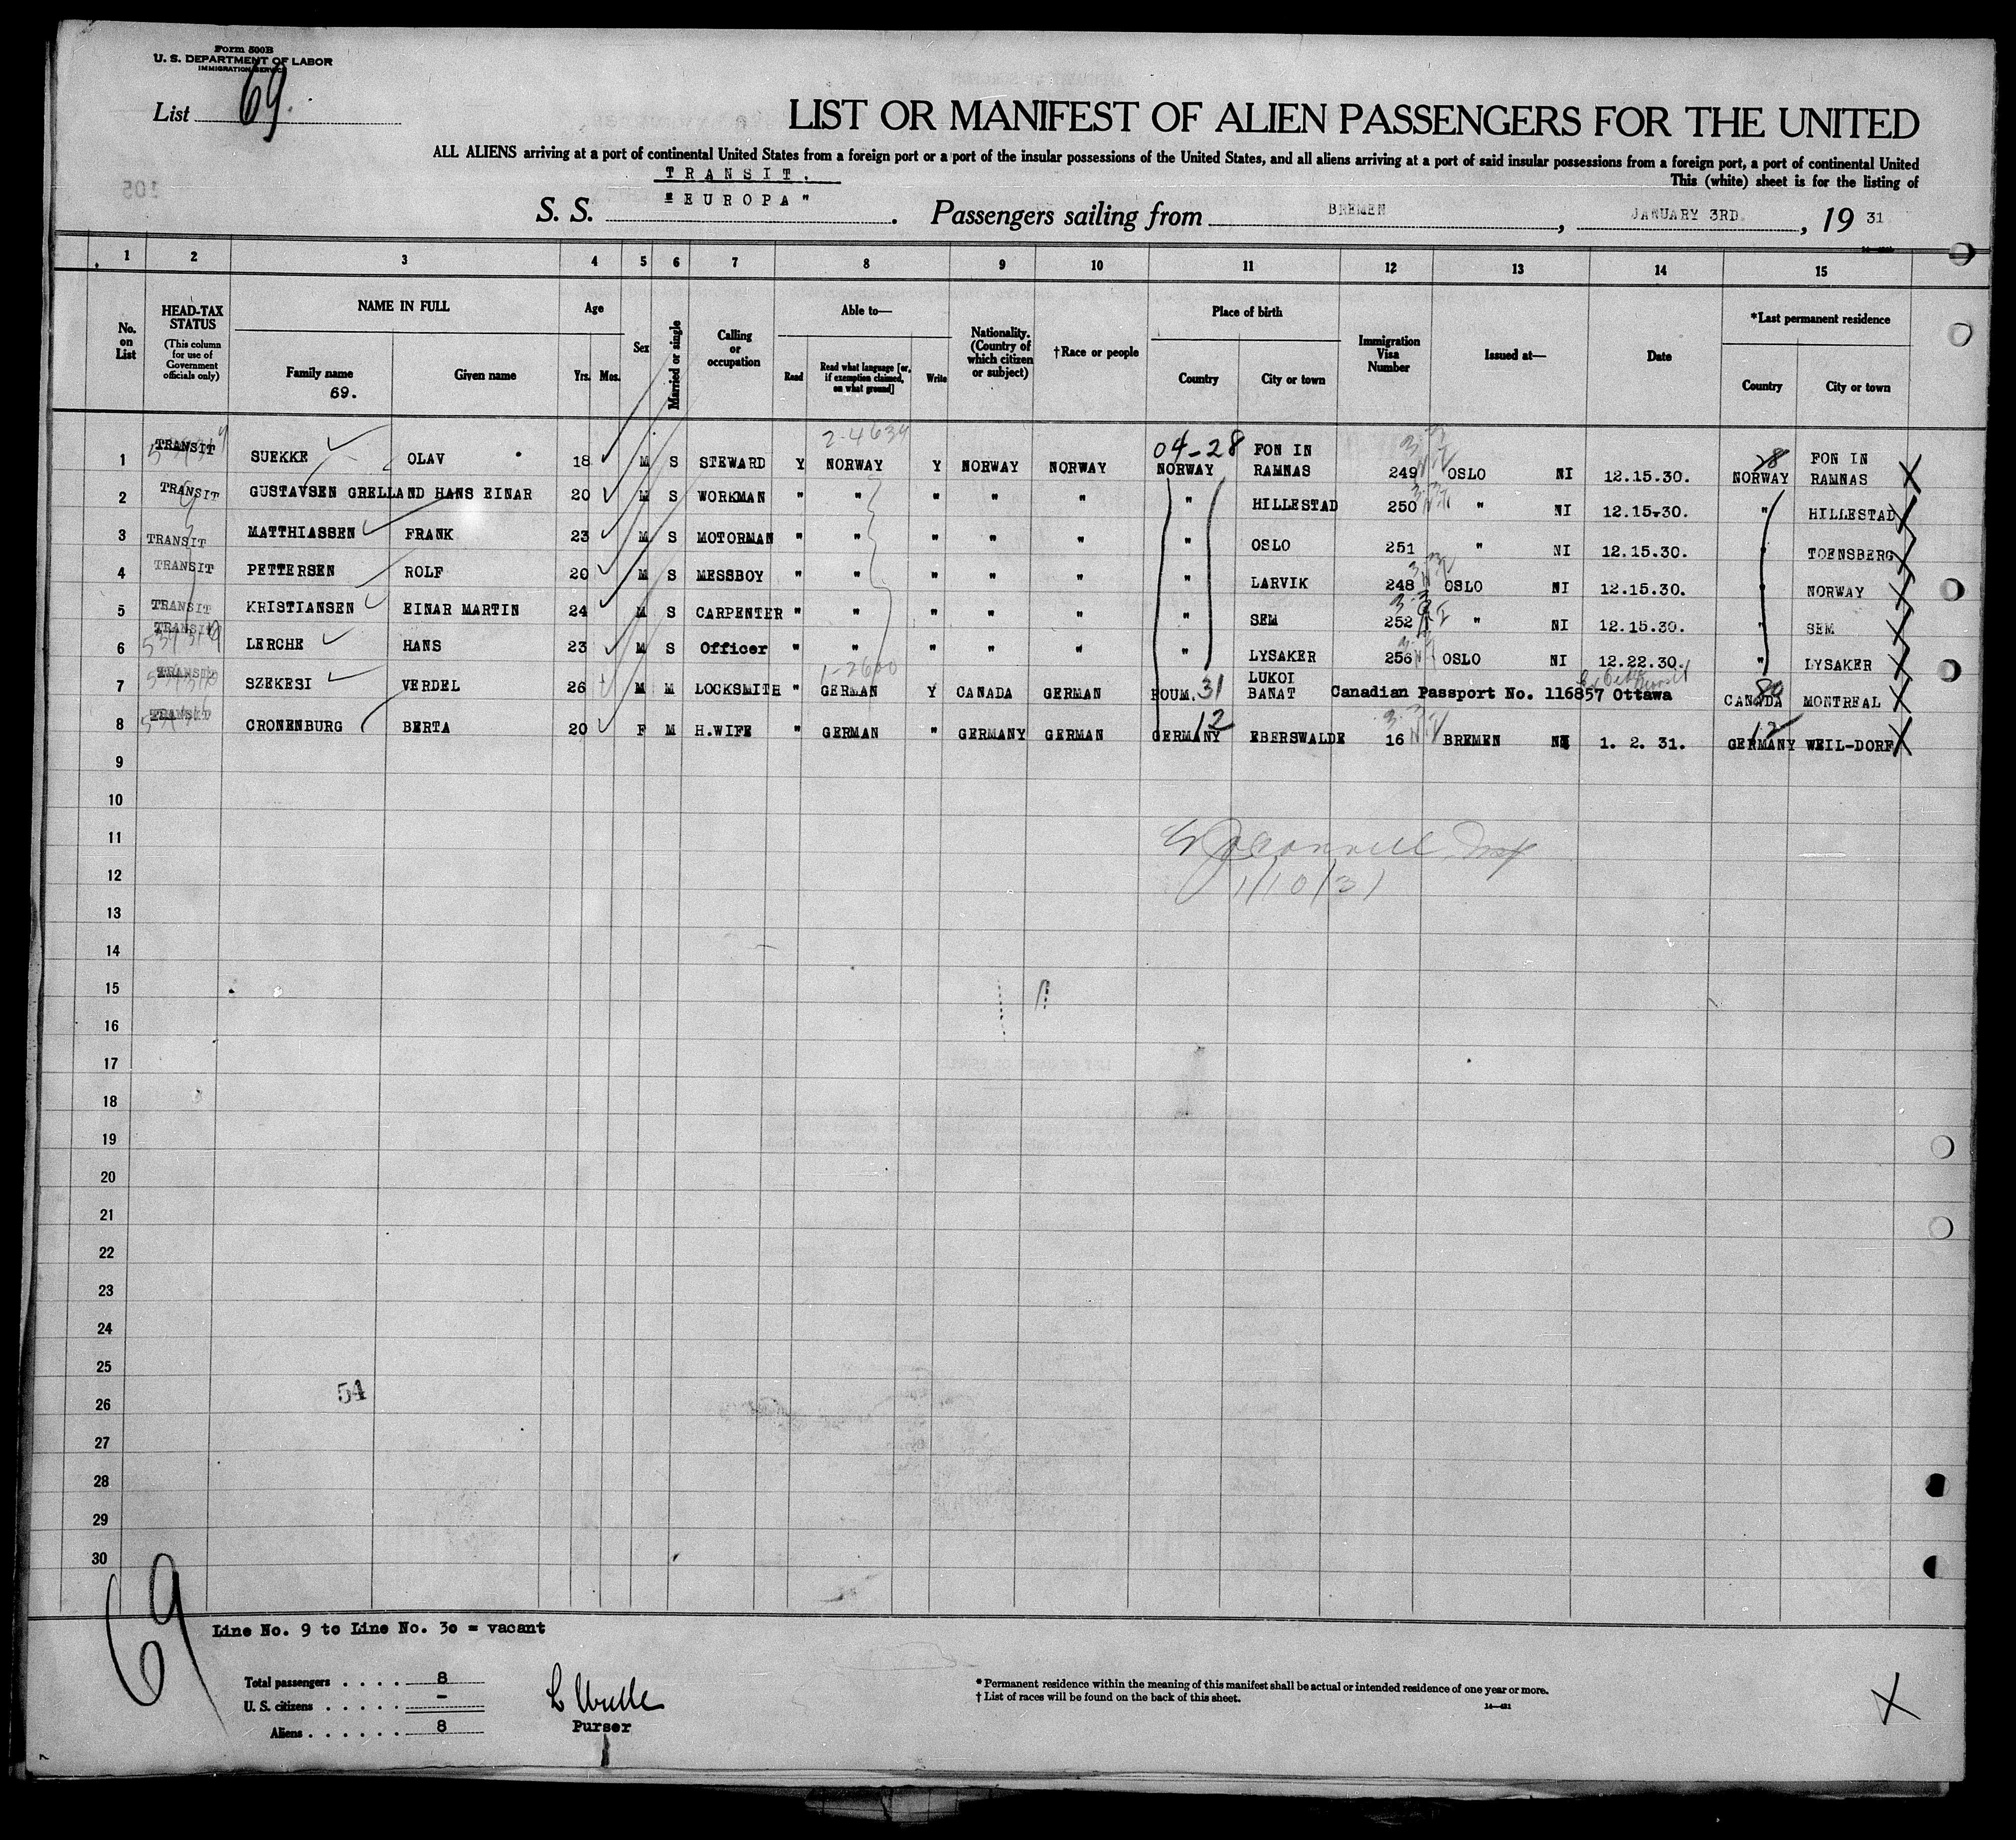 Form 500B
U. S. DEPARTMENT OF LABOR
IMMIGRATION SERVICE
List 69.
LIST OR MANIFEST OF ALIEN PASSENGERS FOR THE UNITED
ALL ALIENS arriving at a port of continental United States from a foreign port or a port of the insular possessions of the United States, and all aliens arriving at a port of said insular possessions from a foreign port, a port of continental United
This (white) sheet is for the listing of
TRANSIT.
S. S. "EUROPA". Passengers sailing from BREMEN, JANUARY 3RD, 19 31
1 2 3 4 5 6 7 8 9 10 11 12 13 14 15
No. on List
HEAD-TAX STATUS
(This column for use of Government officials only)
NAME IN FULL
Family name
69.
Given name
Age
Yrs. Mos.
Sex
Married or single
Calling or occupation
Able to—
Read
Read what language [or, if exemption claimed, on what ground]
Write
Nationality. (Country of which citizen or subject)
†Race or people
Place of birth
Country City or town
Immigration Visa Number
Issued at—
Date
*Last permanent residence
Country City or town
2-4639
04-28 FON IN 28 FON IN
1 TRANSIT SUEKKE OLAV 18 M S STEWARD Y NORWAY Y NORWAY NORWAY NORWAY RAMNAS 249 OSLO NI 12.15.30. NORWAY RAMNAS X
2 TRANSIT GUSTAVSEN GRELLAND HANS EINAR 20 M S WORKMAN " " " " " " HILLESTAD 250 " NI 12.15.30. " HILLESTAD X
3 TRANSIT MATTHIASSEN FRANK 23 M S MOTORMAN " " " " " " OSLO 251 " NI 12.15.30. " TOENSBERG X
4 TRANSIT PETTERSEN ROLF 20 M S MESSBOY " " " " " " LARVIK 248 OSLO NI 12.15.30. " NORWAY X
5 TRANSIT KRISTIANSEN EINAR MARTIN 24 M S CARPENTER " " " " " " SEM 252 " NI 12.15.30. " SEM X
6 TRANSIT LERCHE HANS 23 M S Officer " " " " " " LYSAKER 256 OSLO NI 12.22.30. " LYSAKER X
1-2600
LUKOI
7 TRANSIT SZEKESI VERDEL 26 M M LOCKSMITH " GERMAN Y CANADA GERMAN ROUM. 31 BANAT Canadian Passport No. 116857 Ottawa CANADA MONTREAL X
12 12
8 TRANSIT CRONENBURG BERTA 20 F M H.WIFE " GERMAN " GERMANY GERMAN GERMANY EBERSWALDE 16 BREMEN 1. 2. 31. GERMANY WEIL-DORF X
9
10
11
12
1/10/31
13
14
15
16
17
18
19
20
21
22
23
24
25
54
26
27
28
29
30
69
Line No. 9 to Line No. 30 = vacant
Total passengers . . . . 8
U. S. citizens . . . . . -
Aliens . . . . . . 8
Purser
* Permanent residence within the meaning of this manifest shall be actual or intended residence of one year or more.
† List of races will be found on the back of this sheet.
14—421
X